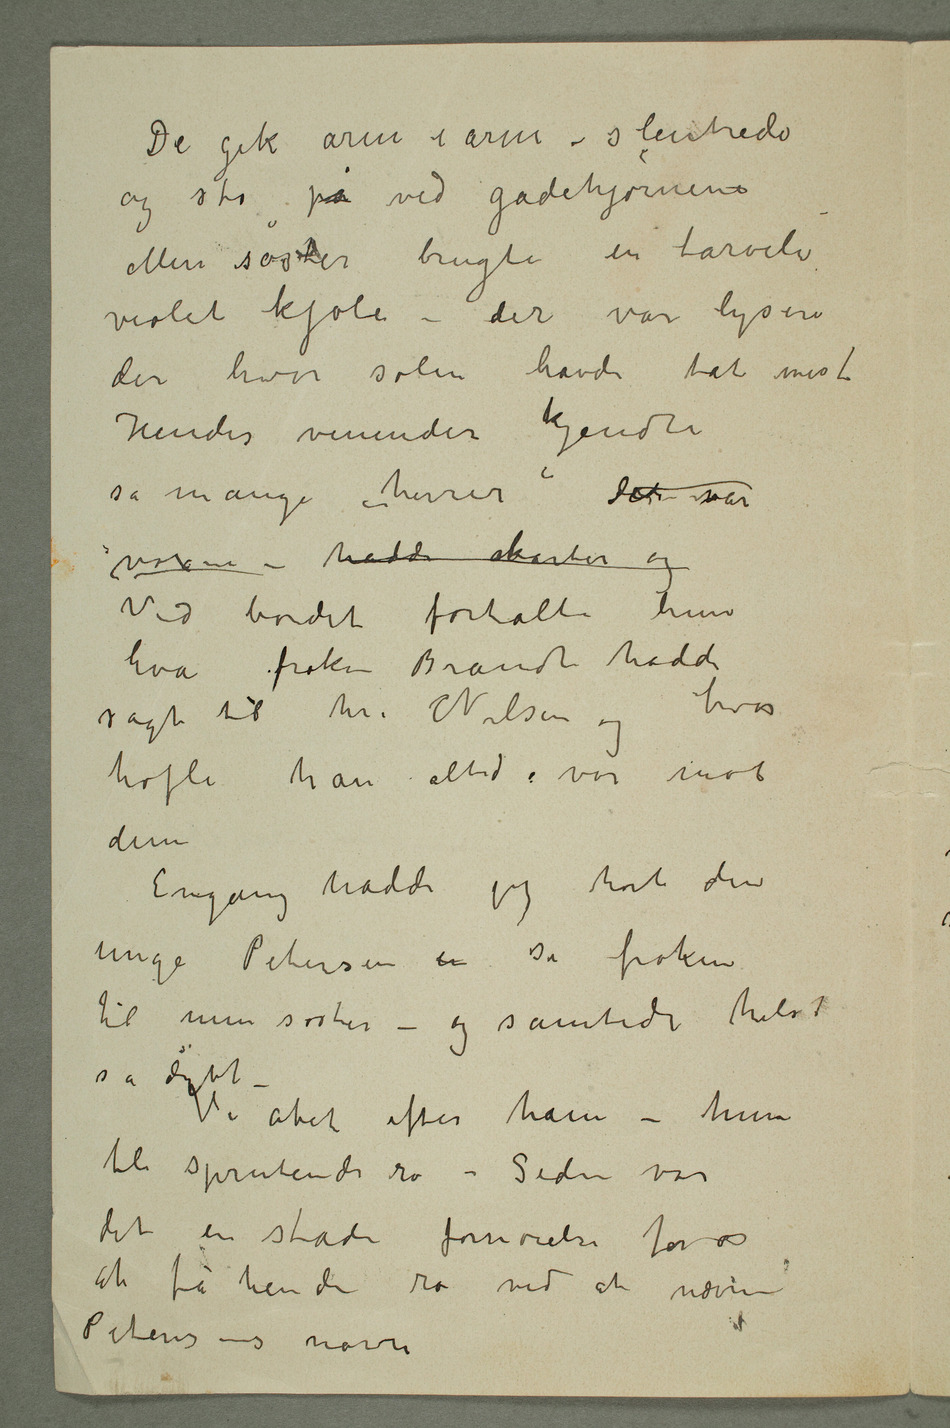 De gik arm i arm – slentrede
og sto på ved gadehjørnene
Min søster brugte en tarveli
violet kjole – der var lysere
der hvor solen havde tat mest
Hendes veninder kjendte
så mange „herrer“ det var
voxne – hadde skarter og
Ved bordet fortalte hun
hva frøken Brandt hadde
sagt til hr. Nilsen og hvor
høfli han altid var mot
dem
Engang hadde jeg hørt den
unge Petersen sa frøken
til min søster – og samtidi hilst
så dybt –
Vi abet efter ham – hun
ble sprutende rø – Siden var
det en stadi fornøielse for os
at få hende rø ved at nævne
Petersens navn